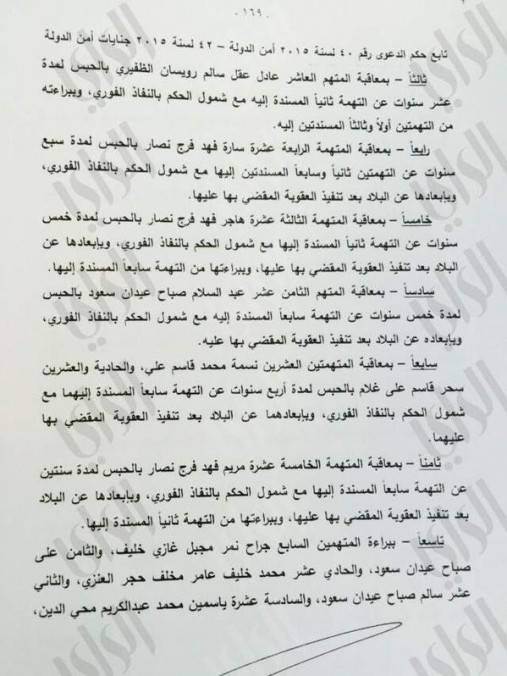 - ١٦٩ -
تابع حكم الدعوى رقم ٤٠ لسنة ٢٠١٥ أمن الدولة – ٤٢ لسنة ٢٠١٥ جنايات أمن الدولة
ثالثاً – بمعاقبة المتهم العاشر عادل عقل سالم رويسان الظفيري بالحبس لمدة
عشر سنوات عن التهمة ثانياً المسندة إليه مع شمول الحكم بالنفاذ الفوري، وببراءته
من التهمتين أولاً وثالثاً المسندتين إليه.
رابعاً – بمعاقبة المتهمة الرابعة عشرة سارة فهد فرج نصار بالحبس لمدة سبع
سنوات عن التهمتين ثانياً وسابعاً المسندتين إليها مع شمول الحكم بالنفاذ الفوري،
وبإبعادها عن البلاد بعد تنفيذ العقوبة المقضي بها عليها.
خامساً – بمعاقبة المتهمة الثالثة عشرة هاجر فهد فرج نصار بالحبس لمدة خمس
سنوات عن التهمة ثانياً المسندة إليها مع شمول الحكم بالنفاذ الفوري، وبإبعادها عن
البلاد بعد تنفيذ العقوبة المقضي بها عليها، وببراءتها من التهمة سابعاً المسندة إليها.
سادساً – بمعاقبة المتهم الثامن عشر عبد السلام صباح عيدان سعود بالحبس
لمدة خمس سنوات عن التهمة سابعاً المسندة إليه مع شمول الحكم بالنفاذ الفوري،
وبإبعاده عن البلاد بعد تنفيذ العقوبة المقضي بها عليه.
سابعاً – بمعاقبة المتهمتين العشرين نسمة محمد قاسم علي، والحادية والعشرين
سحر قاسم على غلام بالحبس لمدة أربع سنوات عن التهمة سابعاً المسندة إليهما مع
شمول الحكم بالنفاذ الفوري، وبإبعادهما عن البلاد بعد تنفيذ العقوبة المقضي بها
عليهما.
ثامناً – بمعاقبة المتهمة الخامسة عشرة مريم فهد فرج نصار بالحبس لمدة سنتين
عن التهمة سابعاً المسندة إليها مع شمول الحكم بالنفاذ الفوري، وبإبعادها عن البلاد
بعد تنفيذ العقوبة المقضي بها عليها، وببراءتها من التهمة ثانياً المسندة إليها.
تاسعاً – ببراءة المتهمين السابع جراح نمر مجبل غازي خليف، والثامن على
صباح عيدان سعود، والحادي عشر محمد خليف عامر مخلف حجر العنزي، والثاني
عشر سالم صباح عيدان سعود، والسادسة عشرة ياسمين محمد عبدالكريم محي الدين،
الراي